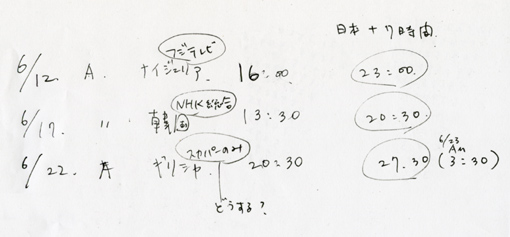 日本 +7時間
フジテレビ
6/12. A ナイジェリア. 16:00 23:00.
NHK総合
6/17. 〃 韓国 13:30 20:30.
スカパーのみ
6/22. A ギリシャ. 20:30 27.30 (3:30)
6/23 AM
どうする?